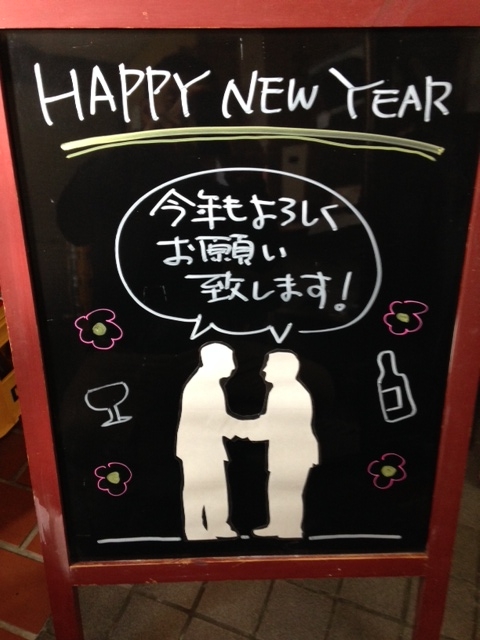 HAPPY NEW YEAR
今年もよろしく
お願い
致します!